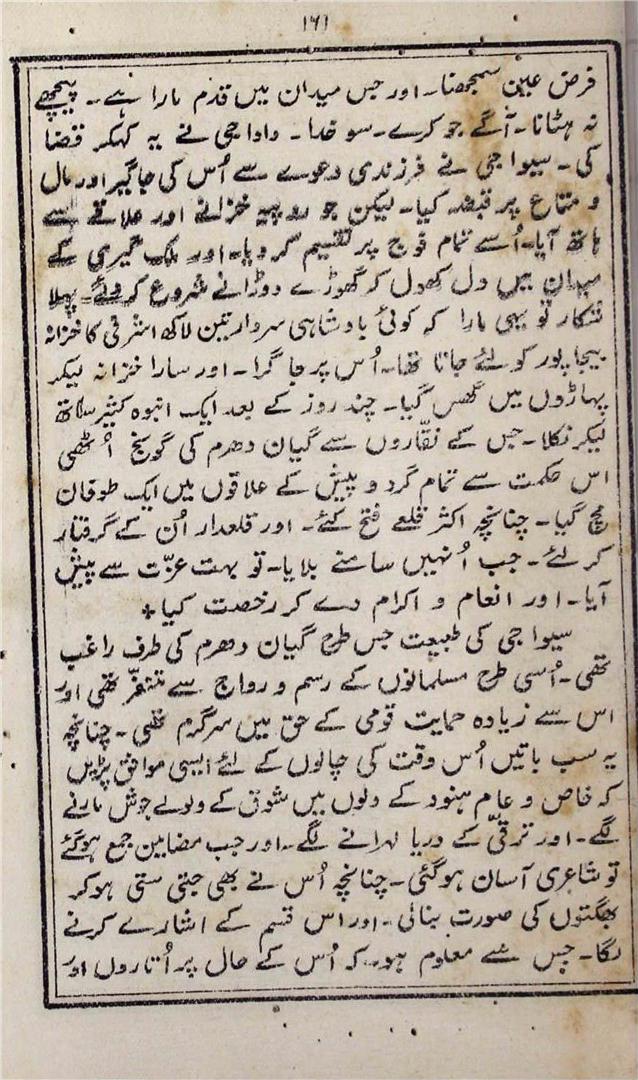 ۱۶۱
فرض عین سمجھنا۔ اور جس میدان میں قدم مارا ہے۔ پیچھے
نہ ہٹانا۔ آگے جو کرے۔ سو خدا۔ داداجی نے یہ کہکر قضا
کی۔ سیواجی نے فرزندی دعوے سے اُس کی جاگیر اور مال
و متاع پر قبضہ کیا۔ لیکن جو روپیہ خزانے اور علاقے سے
ہاتھ آیا۔ اُسے تمام فوج پر تقسیم کر دیا۔ اور ملک گیری کے
میدان میں دل کھول کر گھوڑے دوڑانے شروع کر دئے۔ پہلا
شکار تو یہی مارا کہ کوئی بادشاہی سردار تین لاکھ اشرفی کا خزانہ
بیجاپور کو لئے جاتا تھا۔ اُس پر جا گرا۔ اور سارا خزانہ لیکر
پہاڑوں میں گھس گیا۔ چند روز کے بعد ایک انبوہ کثیر ساتھ
لیکر نکلا۔ جس کے نقّاروں سے گیان دھرم کی گونج اُٹھی
اس حکمت سے تمام گرد و پیش کے علاقوں میں ایک طوفان
مچ گیا۔ چنانچہ اکثر قلعے فتح کئے۔ اور قلعدار اُن کے گرفتار
کر لئے۔ جب اُنہیں سامنے بلایا۔ تو بہت عزّت سے پیش
آیا۔ اور انعام و اکرام دے کر رخصت کیا +
سیواجی کی طبیعت جس طرح گیان دھرم کی طرف راغب
تھی۔ اُسی طرح مسلمانوں کے رسم و رواج سے متنفّر تھی اور
اس سے زیادہ حمایت قومی کے حق میں سرگرم تھی۔ چنانچہ
یہ سب باتیں اُس وقت کی چالوں کے لئے ایسی موافق پڑیں
کہ خاص و عام ہنود کے دلوں میں شوق کے ولولے جوش مارنے
لگے۔ اور ترقّی کے دریا لہرانے لگے۔ اور جب مضامین جمع ہوگئے
تو شاعری آسان ہوگئی۔ چنانچہ اُس نے بھی جتی ستی ہوکر
بھگتوں کی صورت بنائی۔ اور اس قسم کے اشارے کرنے
لگا۔ جس سے معلوم ہو۔ کہ اُس کے حال پر اُتاروں اور